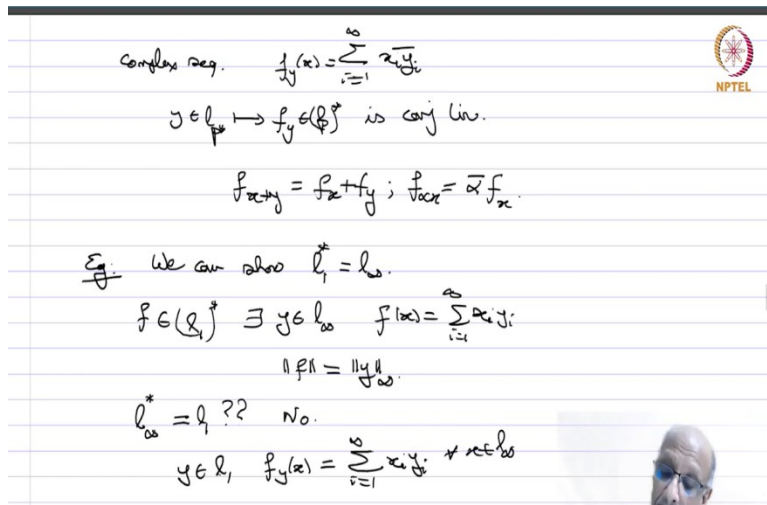 complex seq. f_y(x) = ∑_{i=1}^{∞} x_i \overline{y_i}
NPTEL
y ∈ l_{p*} ↦ f_y ∈ (l_p)^* is conj lin.
f_{x+y} = f_x + f_y ; f_{αx} = \overline{α} f_x.
Eg: We can show l_1^* = l_∞.
f ∈ (l_1)^* ∃ y ∈ l_∞ f(x) = ∑_{i=1}^{∞} x_i y_i
‖f‖ = ‖y‖_∞.
l_∞^* = l_1 ?? No.
y ∈ l_1 f_y(x) = ∑_{i=1}^{∞} x_i y_i ∀ x ∈ l_∞